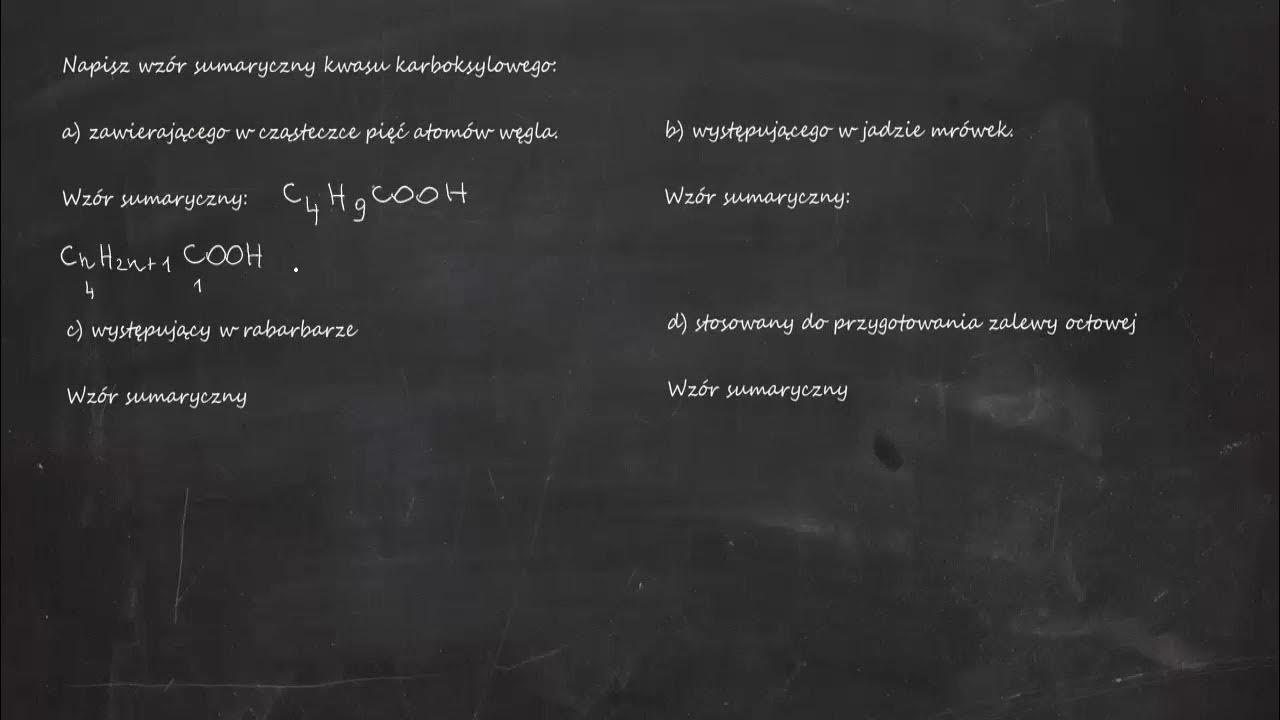 Napisz wzór sumaryczny kwasu karboksylowego:
a) zawierającego w cząsteczce pięć atomów węgla.
Wzór sumaryczny: C4H9COOH
CnH2n+1 COOH
4 1
b) występującego w jadzie mrówek.
Wzór sumaryczny:
c) występujący w rabarbarze
Wzór sumaryczny
d) stosowany do przygotowania zalewy octowej
Wzór sumaryczny